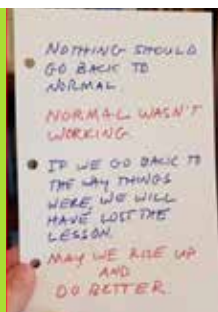 NOTHING SHOULD
GO BACK TO
NORMAL
NORMAL WASN'T
WORKING.
IF WE GO BACK TO
THE WAY THINGS
WERE, WE WILL
HAVE LOST THE
LESSON.
MAY WE RISE UP
AND
DO BETTER.